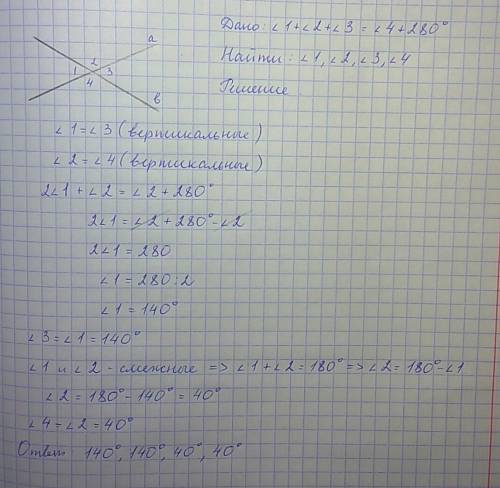 Дано: ∠1+∠2+∠3=∠4+280°
Найти: ∠1, ∠2, ∠3, ∠4
Решение
a
2
1 3
4
b
∠1=∠3 (вертикальные)
∠2=∠4 (вертикальные)
2∠1+∠2=∠2+280°
2∠1=∠2+280°-∠2
2∠1=280
∠1=280:2
∠1=140°
∠3=∠1=140°
∠1 и ∠2 - смежные => ∠1+∠2=180° => ∠2=180°-∠1
∠2=180°-140°=40°
∠4=∠2=40°
Ответ: 140°, 140°, 40°, 40°